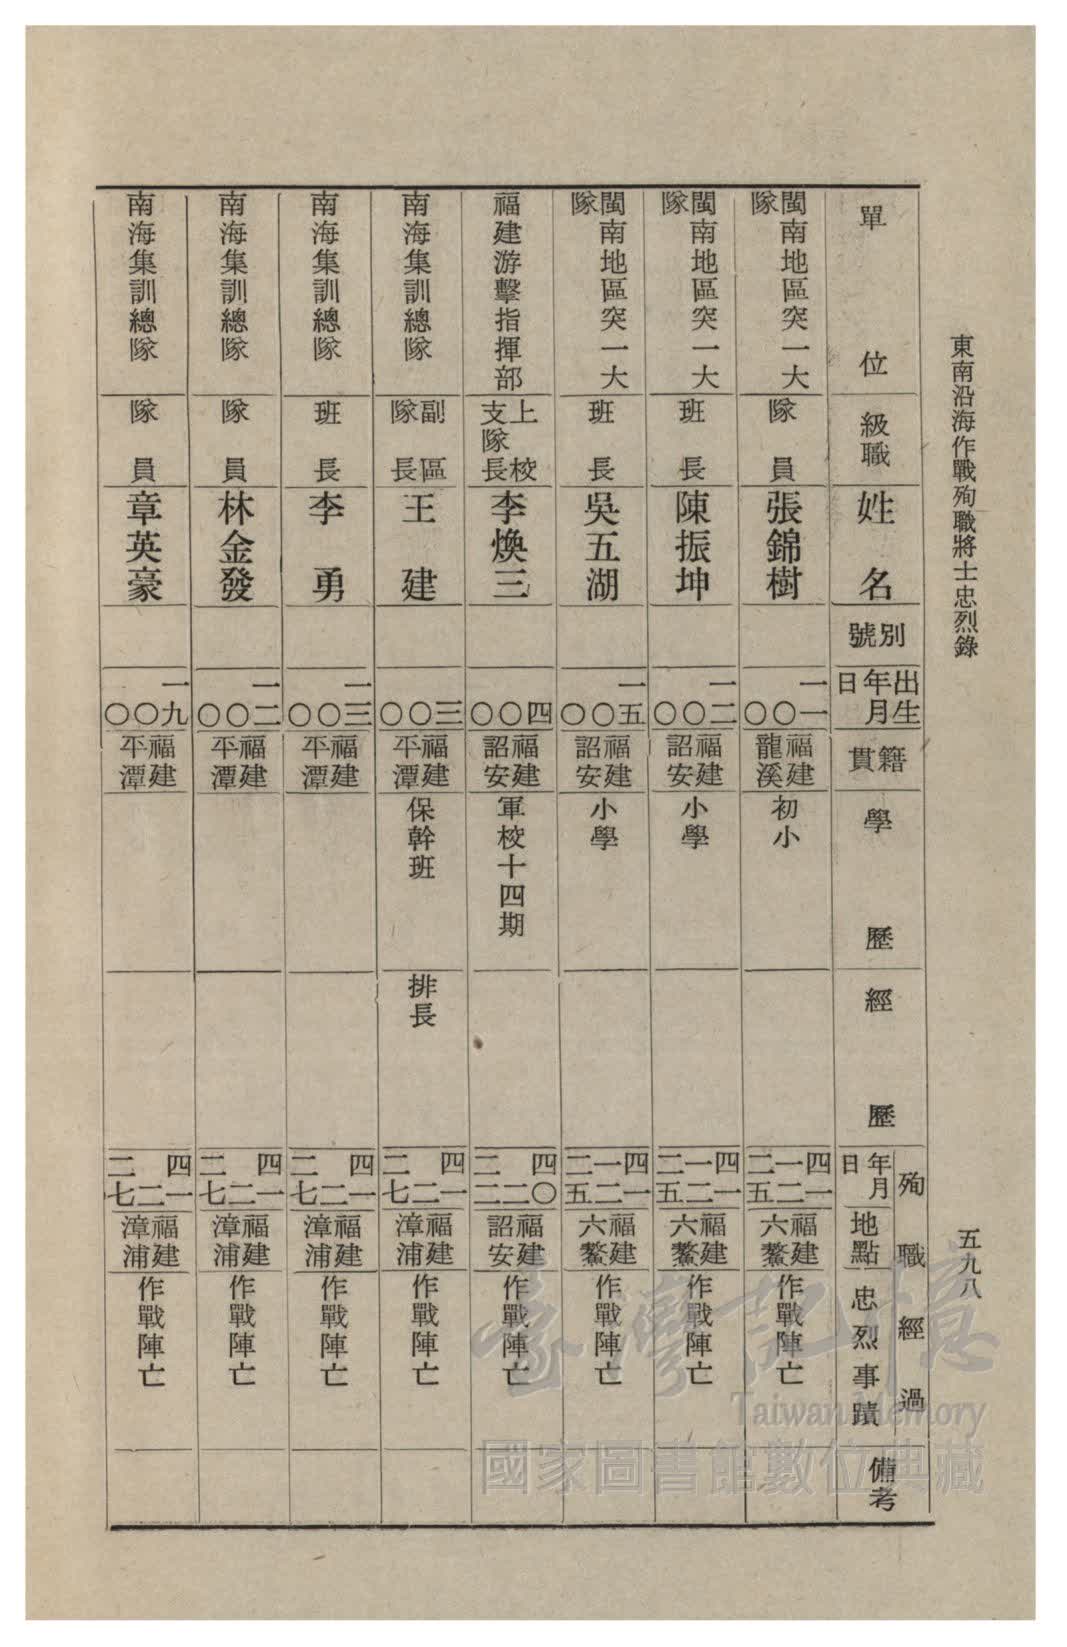 東南沿海作戰殉職將士忠烈錄
五九八
單位 級職 姓名 別號 出生年月日 籍貫 學歷 經歷 殉職經過 年月日 地點 忠烈事蹟 備考
閩南地區突一大隊 隊員 張錦樹 一一 〇 〇 福建龍溪 初小 四一 一二 二五 福建六鰲 作戰陣亡
閩南地區突一大隊 班長 陳振坤 一二 〇 〇 福建詔安 小學 四一 一二 二五 福建六鰲 作戰陣亡
閩南地區突一大隊 班長 吳五湖 一五 〇 〇 福建詔安 小學 四一 一二 二五 福建六鰲 作戰陣亡
福建游擊指揮部 上校支隊長 李煥三 四 〇 〇 福建詔安 軍校十四期 四〇 二 二二 福建詔安 作戰陣亡
南海集訓總隊 副區隊長 王建 三 〇 〇 福建平潭 保幹班 排長 四一 二 二七 福建漳浦 作戰陣亡
南海集訓總隊 班長 李勇 一三 〇 〇 福建平潭 四一 二 二七 福建漳浦 作戰陣亡
南海集訓總隊 隊員 林金發 一二 〇 〇 福建平潭 四一 二 二七 福建漳浦 作戰陣亡
南海集訓總隊 隊員 章英豪 一九 〇 〇 福建平潭 四一 二 二七 福建漳浦 作戰陣亡
臺灣記憶
Taiwan Memory
國家圖書館數位典藏